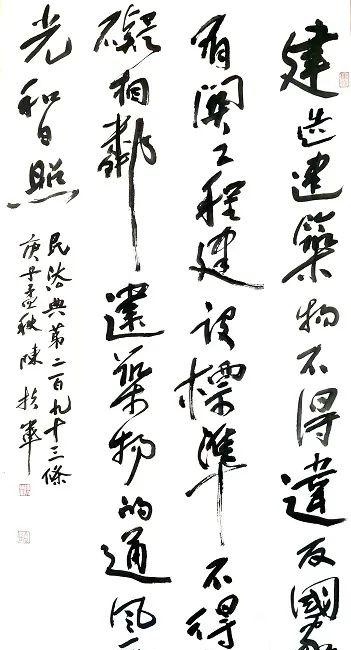 建造建築物不得違反國家
有關工程建設標準不得
礙相鄰建築物的通風
光和日照
民法典第二百九十三條
庚子孟秋陳軍